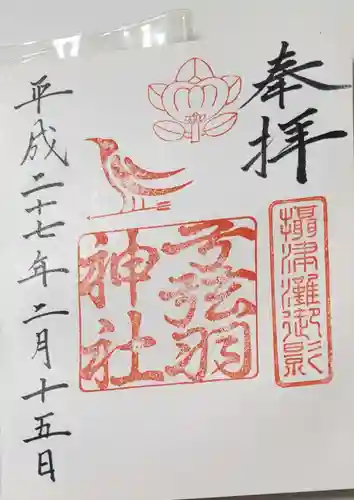 奉拝
攝津灘御影
子弦羽
神社
平成二十七年二月十五日